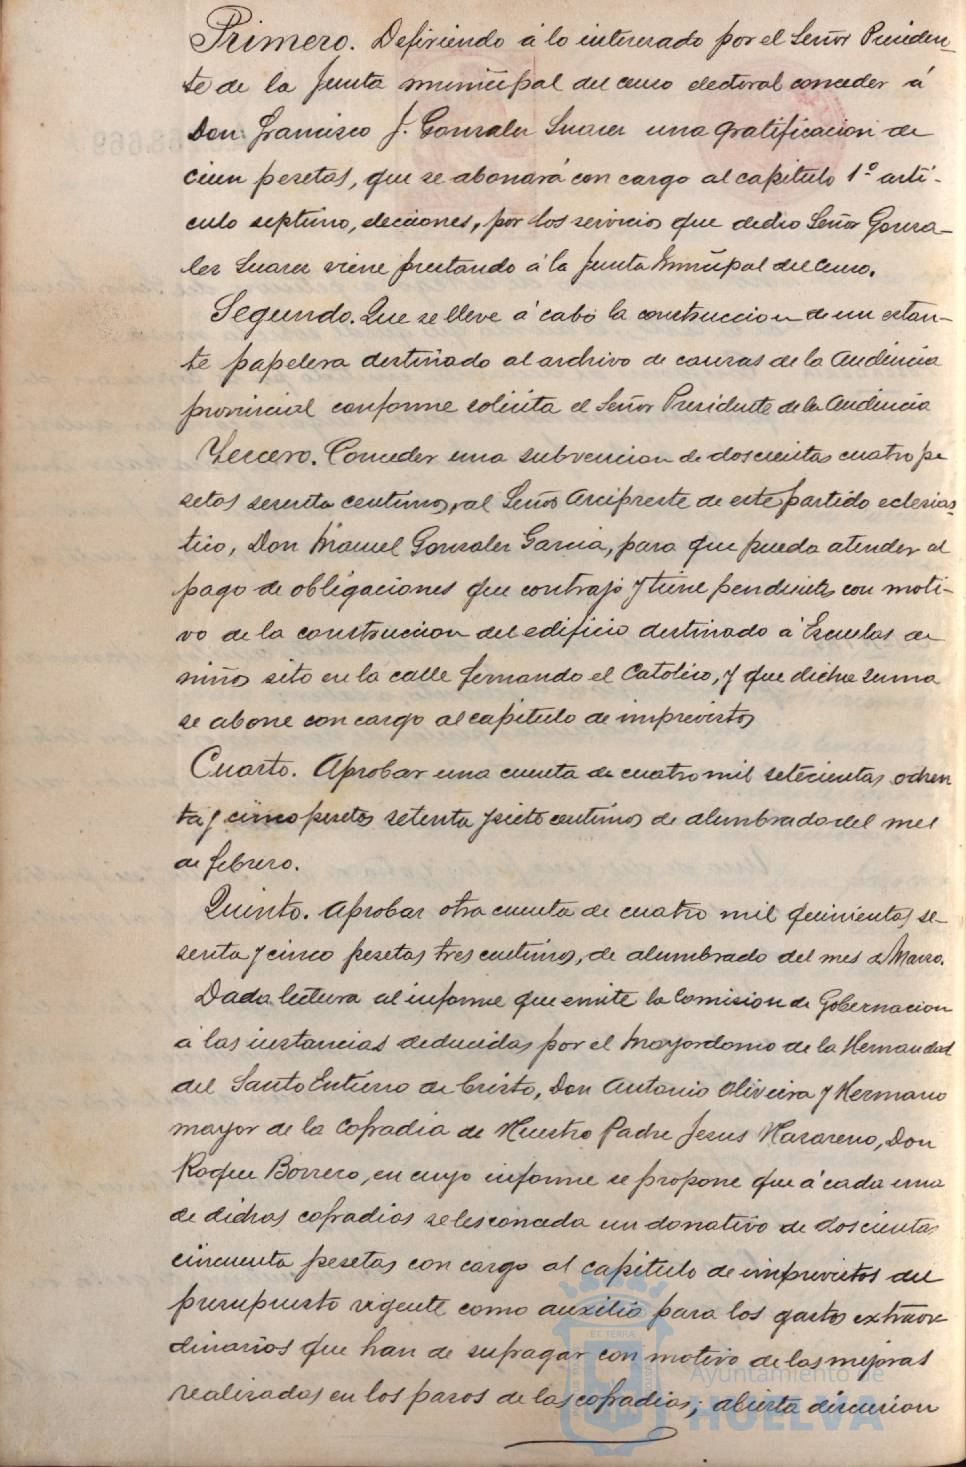 Primero. Defiriendo á lo interesado por el Señor Presiden-
te de la Junta municipal del censo electoral conceder á
Don Francisco J. Gonzalez Suarez una gratificacion de
cien pesetas, que se abonará con cargo al capitulo 1º arti-
culo septimo, elecciones, por los servicios que dicho Señor Gonza-
lez Suarez viene prestando á la Junta Municipal del Censo.
Segundo. Que se lleve á cabo la construccion de un estan-
te papelera destinado al archivo de causas de la Audiencia
provincial conforme solicita el Señor Presidente de la Audiencia
Tercero. Conceder una subvencion de doscientas cuatro pe
setas sesenta centimos, al Señor Arcipreste de este partido eclesias-
tico, Don Manuel Gonzalez Garcia, para que pueda atender al
pago de obligaciones que contrajo y tiene pendientes con moti-
vo de la construccion del edificio destinado á Escuelas de
niños sito en la calle Fernando el Catolico, y que dicha suma
se abone con cargo al capitulo de imprevistos
Cuarto. Aprobar una cuenta de cuatro mil setecientas ochen
ta y cinco pesetas setenta y siete centimos de alumbrado del mes
de febrero.
Quinto. Aprobar otra cuenta de cuatro mil quinientas se-
senta y cinco pesetas tres centimos, de alumbrado del mes de Marzo.
Dada lectura al informe que emite la Comision de Gobernacion
á las instancias deducidas por el Mayordomo de la Hermandad
del Santo Entierro de Cristo, Don Antonio Oliveira y Hermano
mayor de la Cofradia de Nuestro Padre Jesus Nazareno, Don
Roque Borrero, en cuyo informe se propone que á cada una
de dichas cofradias se les conceda un donativo de doscientas
cincuenta pesetas con cargo al capitulo de imprevistos del
presupuesto vigente como auxilio para los gastos extraor
dinarios que han de sufragar con motivo de las mejoras
realizadas en los pasos de las cofradias; abierta discusion
Ayuntamiento de
HUELVA